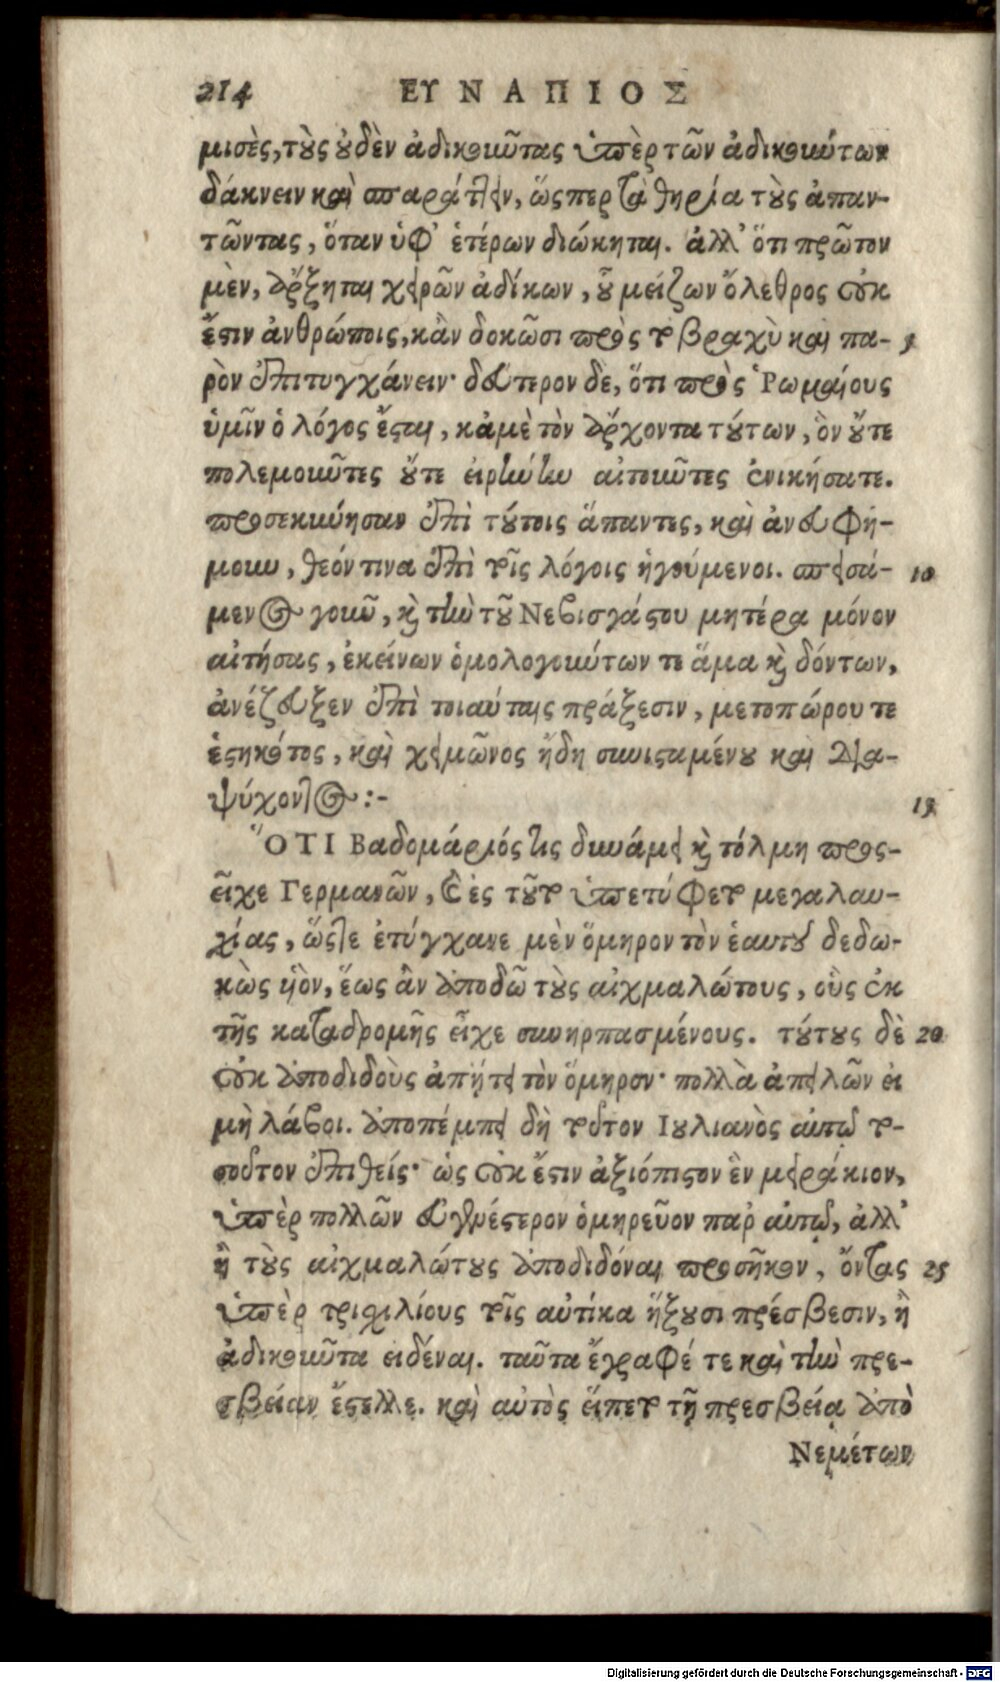 214 ΕΥΝΑΠΙΟΣ
μισὲς, τοὺς οὐδὲν ἀδικοῦντας ὑπὲρ τῶν ἀδικούντων
δάκνειν καὶ σπαράττειν, ὥσπερ τὰ θηρία τοὺς ἀπαν-
τῶντας, ὅταν ὑφ' ἑτέρων διώκηται. ἀλλ' ὅτι πρῶτον
μὲν, ἄρξηται χειρῶν ἀδίκων, οὗ μείζων ὄλεθρος οὐκ
ἔστιν ἀνθρώποις, κἂν δοκῶσι πρὸς τὸ βραχὺ καὶ πα- 5
ρὸν ἐπιτυγχάνειν· δεύτερον δὲ, ὅτι πρὸς Ῥωμαίους
ὑμῖν ὁ λόγος ἔσται, κἀμὲ τὸν ἄρχοντα τούτων, ὃν οὔτε
πολεμοῦντες οὔτε εἰρήνην αἰτοῦντες ἐνικήσατε.
προσεκύνησαν ἐπὶ τούτοις ἅπαντες, καὶ ἀνευφή-
μουν, θεόν τινα ἐπὶ τοῖς λόγοις ἡγούμενοι. σπεισά- 10
μενος γοῦν, καὶ τὴν τοῦ Νεβισγάστου μητέρα μόνον
αἰτήσας, ἐκείνων ὁμολογούντων τε ἅμα καὶ δόντων,
ἀνέζευξεν ἐπὶ τοιαύταις πράξεσιν, μετοπώρου τε
ἑστηκότος, καὶ χειμῶνος ἤδη συνισταμένου καὶ δια-
ψύχοντος :- 15
ὍΤΙ Βαδομάριός τις δυνάμει καὶ τόλμῃ προς-
εῖχε Γερμανῶν, καὶ ἐς τοῦτο ὑπετύφετο μεγαλαυ-
χίας, ὥστε ἐτύγχανε μὲν ὅμηρον τὸν ἑαυτοῦ δεδω-
κὼς ὑὸν, ἕως ἂν ἀποδῶ τοὺς αἰχμαλώτους, οὓς ἐκ
τῆς καταδρομῆς εἶχε συνηρπασμένους. τούτους δὲ 20
οὐκ ἀποδιδοὺς ἀπῄτει τὸν ὅμηρον· πολλὰ ἀπειλῶν εἰ
μὴ λάβοι. ἀποπέμπει δὴ τοῦτον Ιουλιανὸς αὐτῷ το-
σοῦτον ἐπιθείς· ὡς οὐκ ἔστιν ἀξιόπιστον ἓν μειράκιον,
ὑπὲρ πολλῶν εὐγενέστερον ὁμηρεῦον παρ' αὐτῷ, ἀλλ'
ἢ τοὺς αἰχμαλώτους ἀποδιδόναι προσῆκον, ὄντας 25
ὑπὲρ τρισχιλίους τοῖς αὐτίκα ἥξουσι πρέσβεσιν, ἢ
ἀδικοῦντα εἰδέναι. ταῦτα ἔγραφέ τε καὶ τὴν πρε-
σβείαν ἔστελλε. καὶ αὐτὸς εἵπετο τῇ πρεσβείᾳ ἀπὸ
Νεμέτων
Digitalisierung gefördert durch die Deutsche Forschungsgemeinschaft - DFG